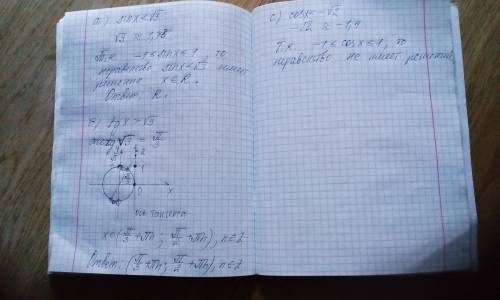 a) sinx<√3
√3 ≈ 1,78
Т.к. -1≤sinx≤1, то
неравенство sinx<√3 имеет
решение x∈R.
Ответ: R.
б) tg x > √3
√3 = π/3
2
1
0
x
ось тангенса
x∈(π/3+πn; π/2+πn), n∈Z
Ответ: (π/3+πn; π/2+πn), n∈Z
c) cosx<-√3
-√2 ≈ -1,4
Т.к. -1≤cosx≤1, то
неравенство не имеет решения